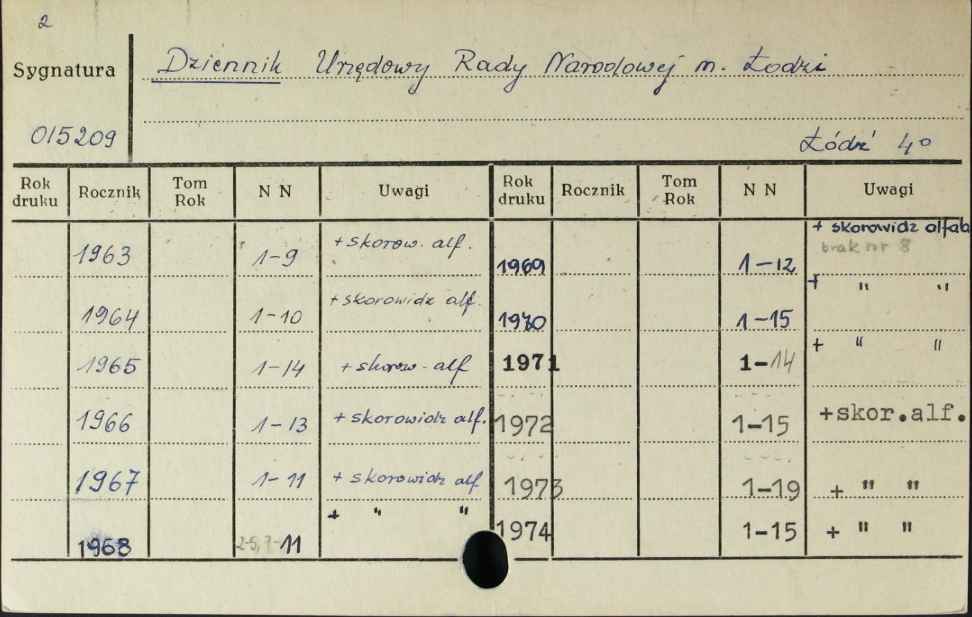 2
Sygnatura
Dziennik Urzędowy Rady Narodowej m. Łodzi
015209
Łódź 4º
Rok druku Rocznik Tom Rok N N Uwagi Rok druku Rocznik Tom Rok N N Uwagi
1963 1-9 +skorow. alf. 1969 1-12 + skorowidz alfab
brak nr 8
1964 1-10 +skorowidz alf. 1970 1-15 + " "
1965 1-14 +skorow. alf 1971 1-14 + " "
1966 1-13 +skorowidz alf. 1972 1-15 +skor.alf.
1967 1-11 + skorowidz alf 1973 1-19 + " "
1968 2-5, 7-11 + " " 1974 1-15 + " "